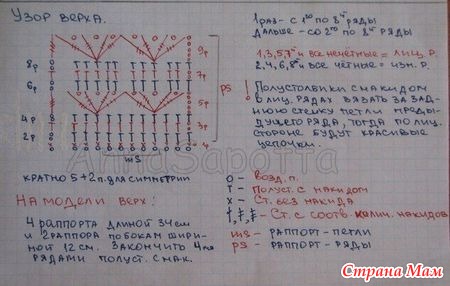 Узор верха.
1 раз - с 1го по 8й ряды
дальше - со 2го по 8й ряды
1,3,5,7й и все нечётные = лиц. р.
2,4,6,8й и все чётные = изн. р.
Полустолбики с накидом
в лиц. рядах вязать за зад-
нюю стенку петли преды-
дущего ряда, тогда по лиц.
стороне будут красивые
цепочки.
9р
8р
7р
6р
5р
4р
3р
2р
1р
рs
ms
AnnaSapotta
кратно 5+2п. для симметрии
На модели верх:
4 раппорта длиной 34 см
и 2 раппорта по бокам шири-
ной 12 см. Закончить 4мя
рядами полуст. с нак.
О - Возд. п.
Т - Полуст. с накидом
Х - Ст. без накида
- Ст. с соотв. колич. накидов
ms - раппорт - петли
рs - раппорт - ряды
Страна Мам